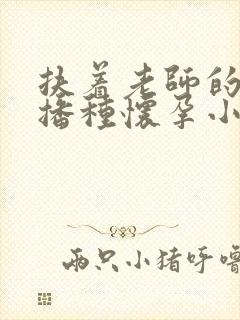 扶着老師的
播種懷孕小
兩只小猪呼嚕